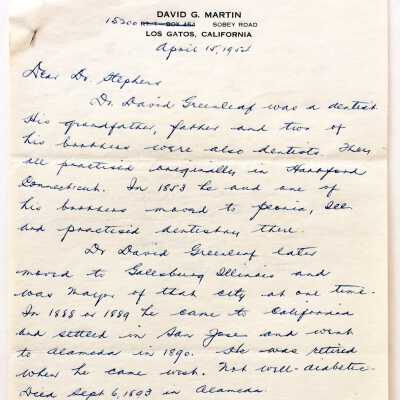 DAVID G. MARTIN
15200 RT. 1 - BOX 453 SOBEY ROAD
LOS GATOS, CALIFORNIA
April 15, 1952
Dear Dr. Stephens
Dr. David Greenleaf was a dentist
His grandfather, father and two of
his brothers were also dentists. They
all practised originally in Hartford
Connecticut. In 1853 he and one of
his brothers moved to Peoria, Ill
and practised dentistry there.
Dr David Greenleaf later
moved to Galesburg Illinois and
was Mayor of that city at one time.
In 1888 or 1889 he came to California
and settled in San Jose and went
to Alameda in 1890. He was retired
when he came west. Not well-diabetic.
Died Sept 6, 1893 in Alameda.